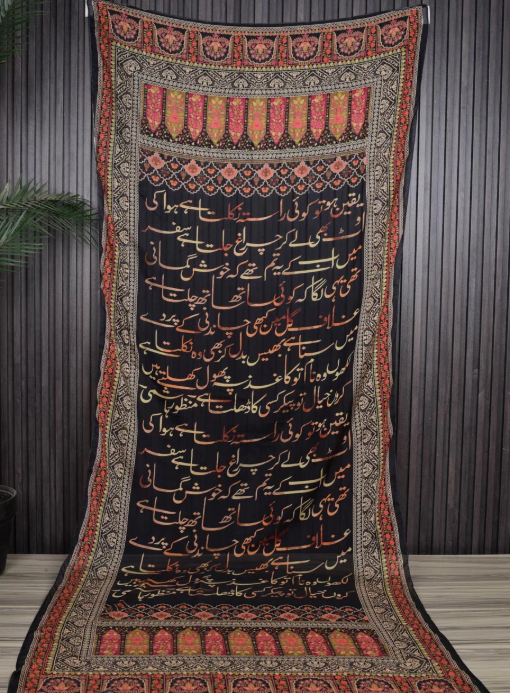 یقین ہو تو کوئی راستہ نکلتا ہے ہوا کی
اوٹ بھی لے کر چراغ جلتا ہے سفر
میں اب کے یہ تم تھے کہ خوش گمانی
تھی یہی لگا کہ کوئی ساتھ ساتھ چلتا ہے
غلاف گل میں کبھی چاندنی کے پردے
میں سنا ہے بھیس بدل کر بھی وہ نکلتا ہے
لکھوں وہ نام تو کاغذ پہ پھول کھلتے ہیں
کروں خیال تو پیکر کسی کا ڈھلتا ہے منظور ہاشمی
یقین ہو تو کوئی راستہ نکلتا ہے ہوا کی
اوٹ بھی لے کر چراغ جلتا ہے سفر
میں اب کے یہ تم تھے کہ خوش گمانی
تھی یہی لگا کہ کوئی ساتھ ساتھ چلتا ہے
غلاف گل میں کبھی چاندنی کے پردے
میں سنا ہے بھیس بدل کر بھی وہ نکلتا ہے
لکھوں وہ نام تو کاغذ پہ پھول
کروں خیال تو پیکر کسی کا ڈھلتا ہے منظور ہاشمی